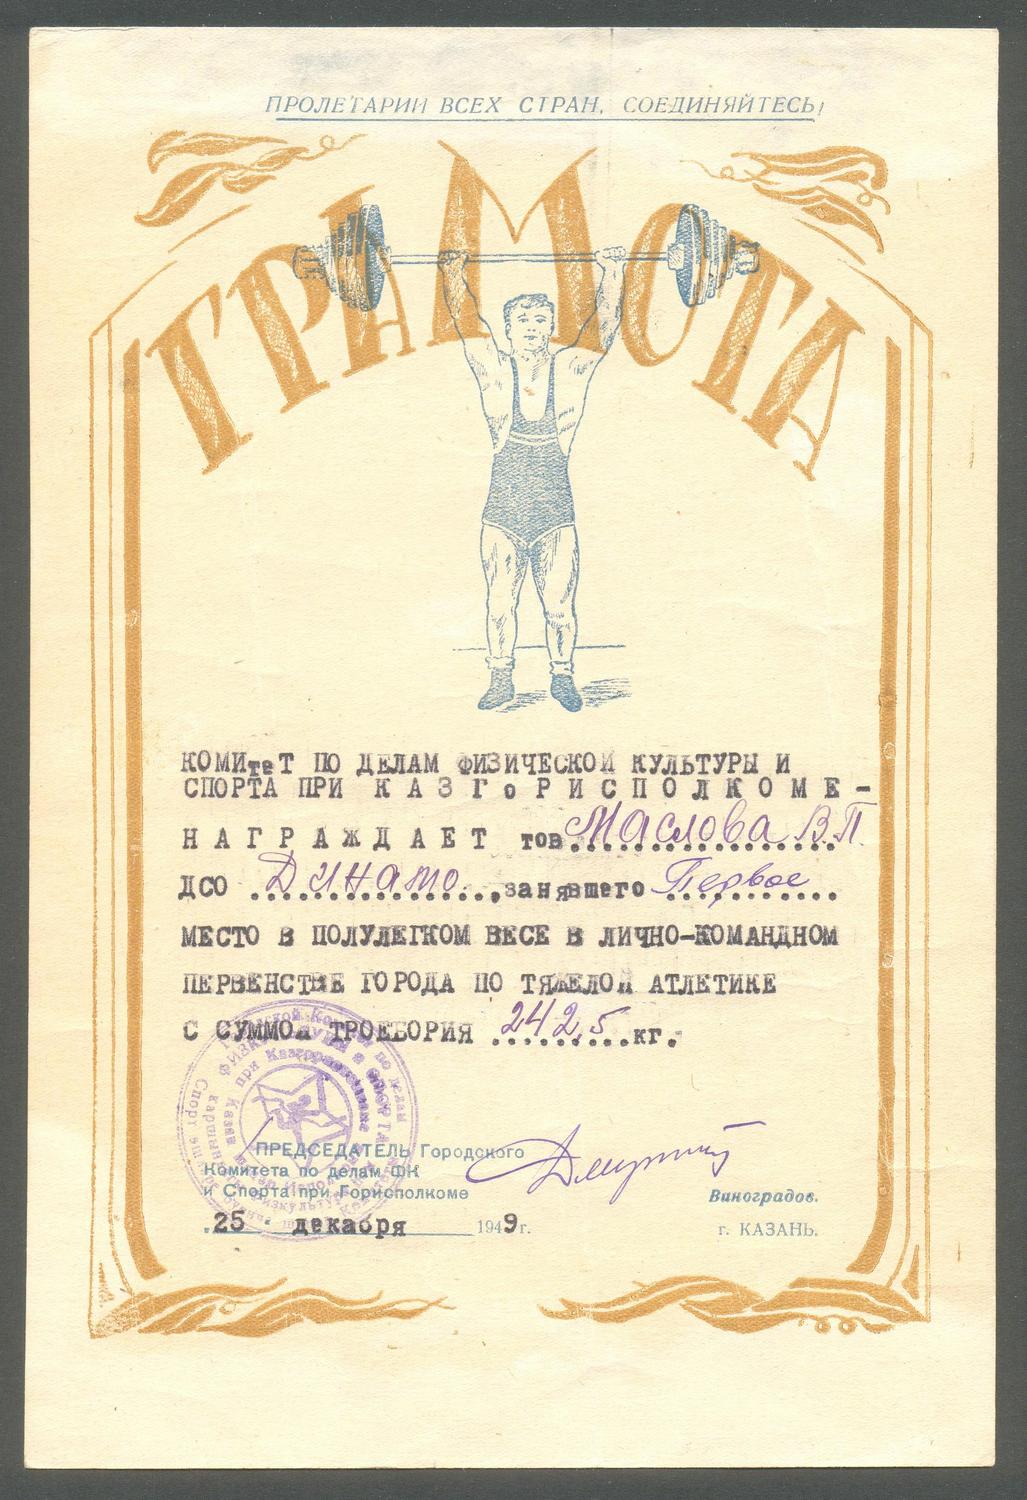 ПРОЛЕТАРИИ ВСЕХ СТРАН, СОЕДИНЯЙТЕСЬ!
ГРАМОТА
КОМИтеТ ПО ДЕЛАМ ФИЗИЧЕСКОЙ КУЛЬТУРЫ И
СПОРТА ПРИ КАЗГОРИСПОЛКОМЕ-
НАГРАЖДАЕТ тов. Маслова В.П.
ДСО Динамо, занявшего Первое
МЕСТО В ПОЛУЛЕГКОМ ВЕСЕ В ЛИЧНО-КОМАНДНОМ
ПЕРВЕНСТВЕ ГОРОДА ПО ТЯЖЕЛОЙ АТЛЕТИКЕ
С СУММОЙ ТРОЕБОРИЯ 242,5 кг.
ПРЕДСЕДАТЕЛЬ Городского
Комитета по делам ФК
и Спорта при Горисполкоме
Виноградов.
"25" декабря 1949 г.
г. КАЗАНЬ.